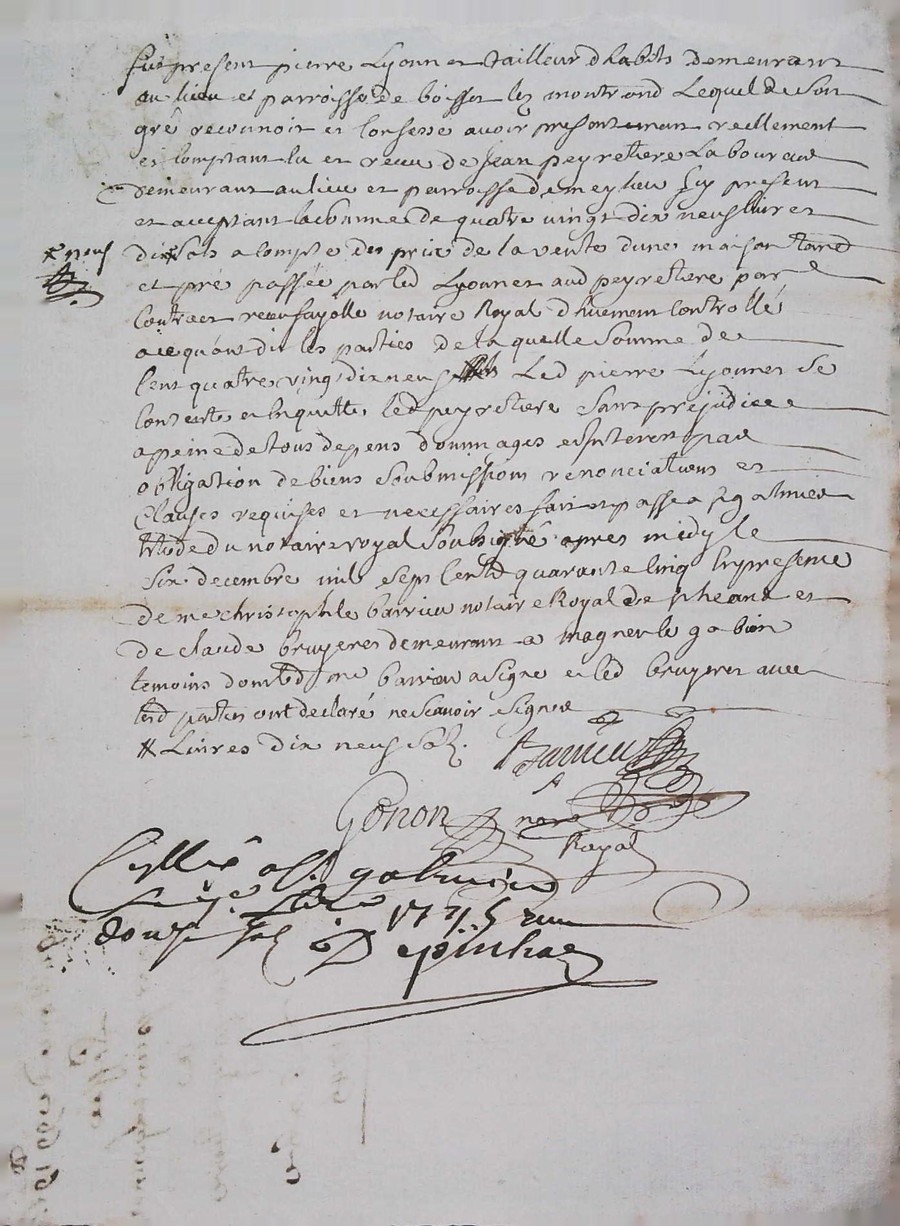 fut present pierre Lyonnet tailleur dhabits demeurant
au lieu et parroisse de boisset les montrond Lequel de son
gré reconnoit et confesse avoir presentement reellement
et comptant eu et receu de Jean peyretiere Laboureur
demeurant au lieu et parroisse de meylieu Icy present
et acceptant la somme de quatre vingt dix neuf livres
dix # sols a compte du prix de la vente dune maison Jardt
# neuf
et pré passée par led Lyonnet aud peyretiere par
Contract receu fayolle notaire Royal dhuement Controllé
ace quont dit les parties de la quelle somme de
Cent quatre vingt dix neuf Led pierre Lyonnet se
Contente en quitte led peyretiere sans prejudice
a peine de tous depens dommages et Interets par
obligation de biens soubmissions renonciations et
Clauses requises et necessaires fait et passé a St galmier
Etude du notaire royal soubsigné apres midy le
six decembre mil sept Cent quarante cinq En presence
de me christophle barrieu notaire Royal de et
de claude bruyeres demeurant a magneu le gabion
temoins dont led me barrieu a signé et led bruyeres avec
lesd parties ont declaré ne scavoir signer
# Livres dix neuf sols.
Barrieu
Gonon
nore
Royal
Cllé a St galmier
le 1745 reçu
douze sols Depinhac